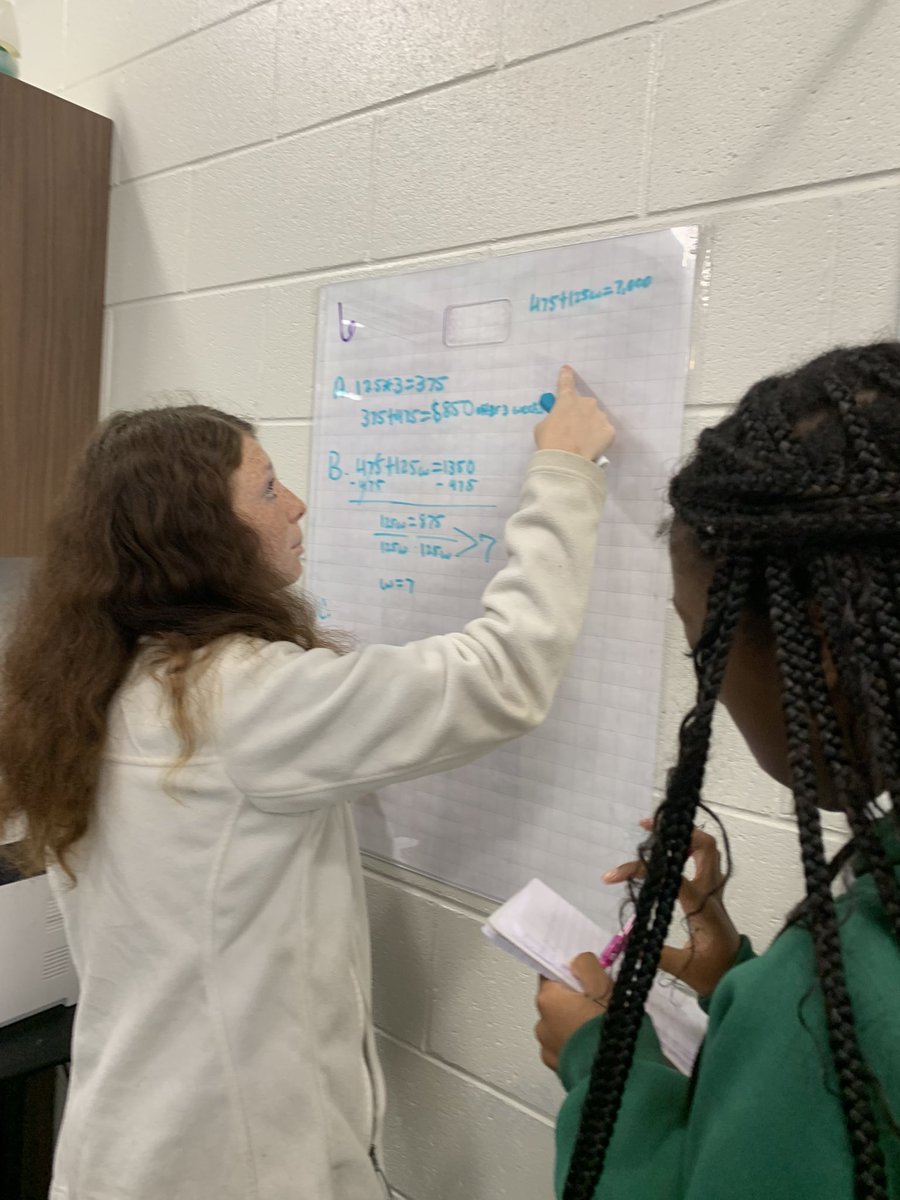 6
475+125w=7,000
A. 125*3=375
375+475=$850 after 3 weeks
B. 475+125w=1350
-475 -475
125w=875
125w 125w >7
w=7
C.